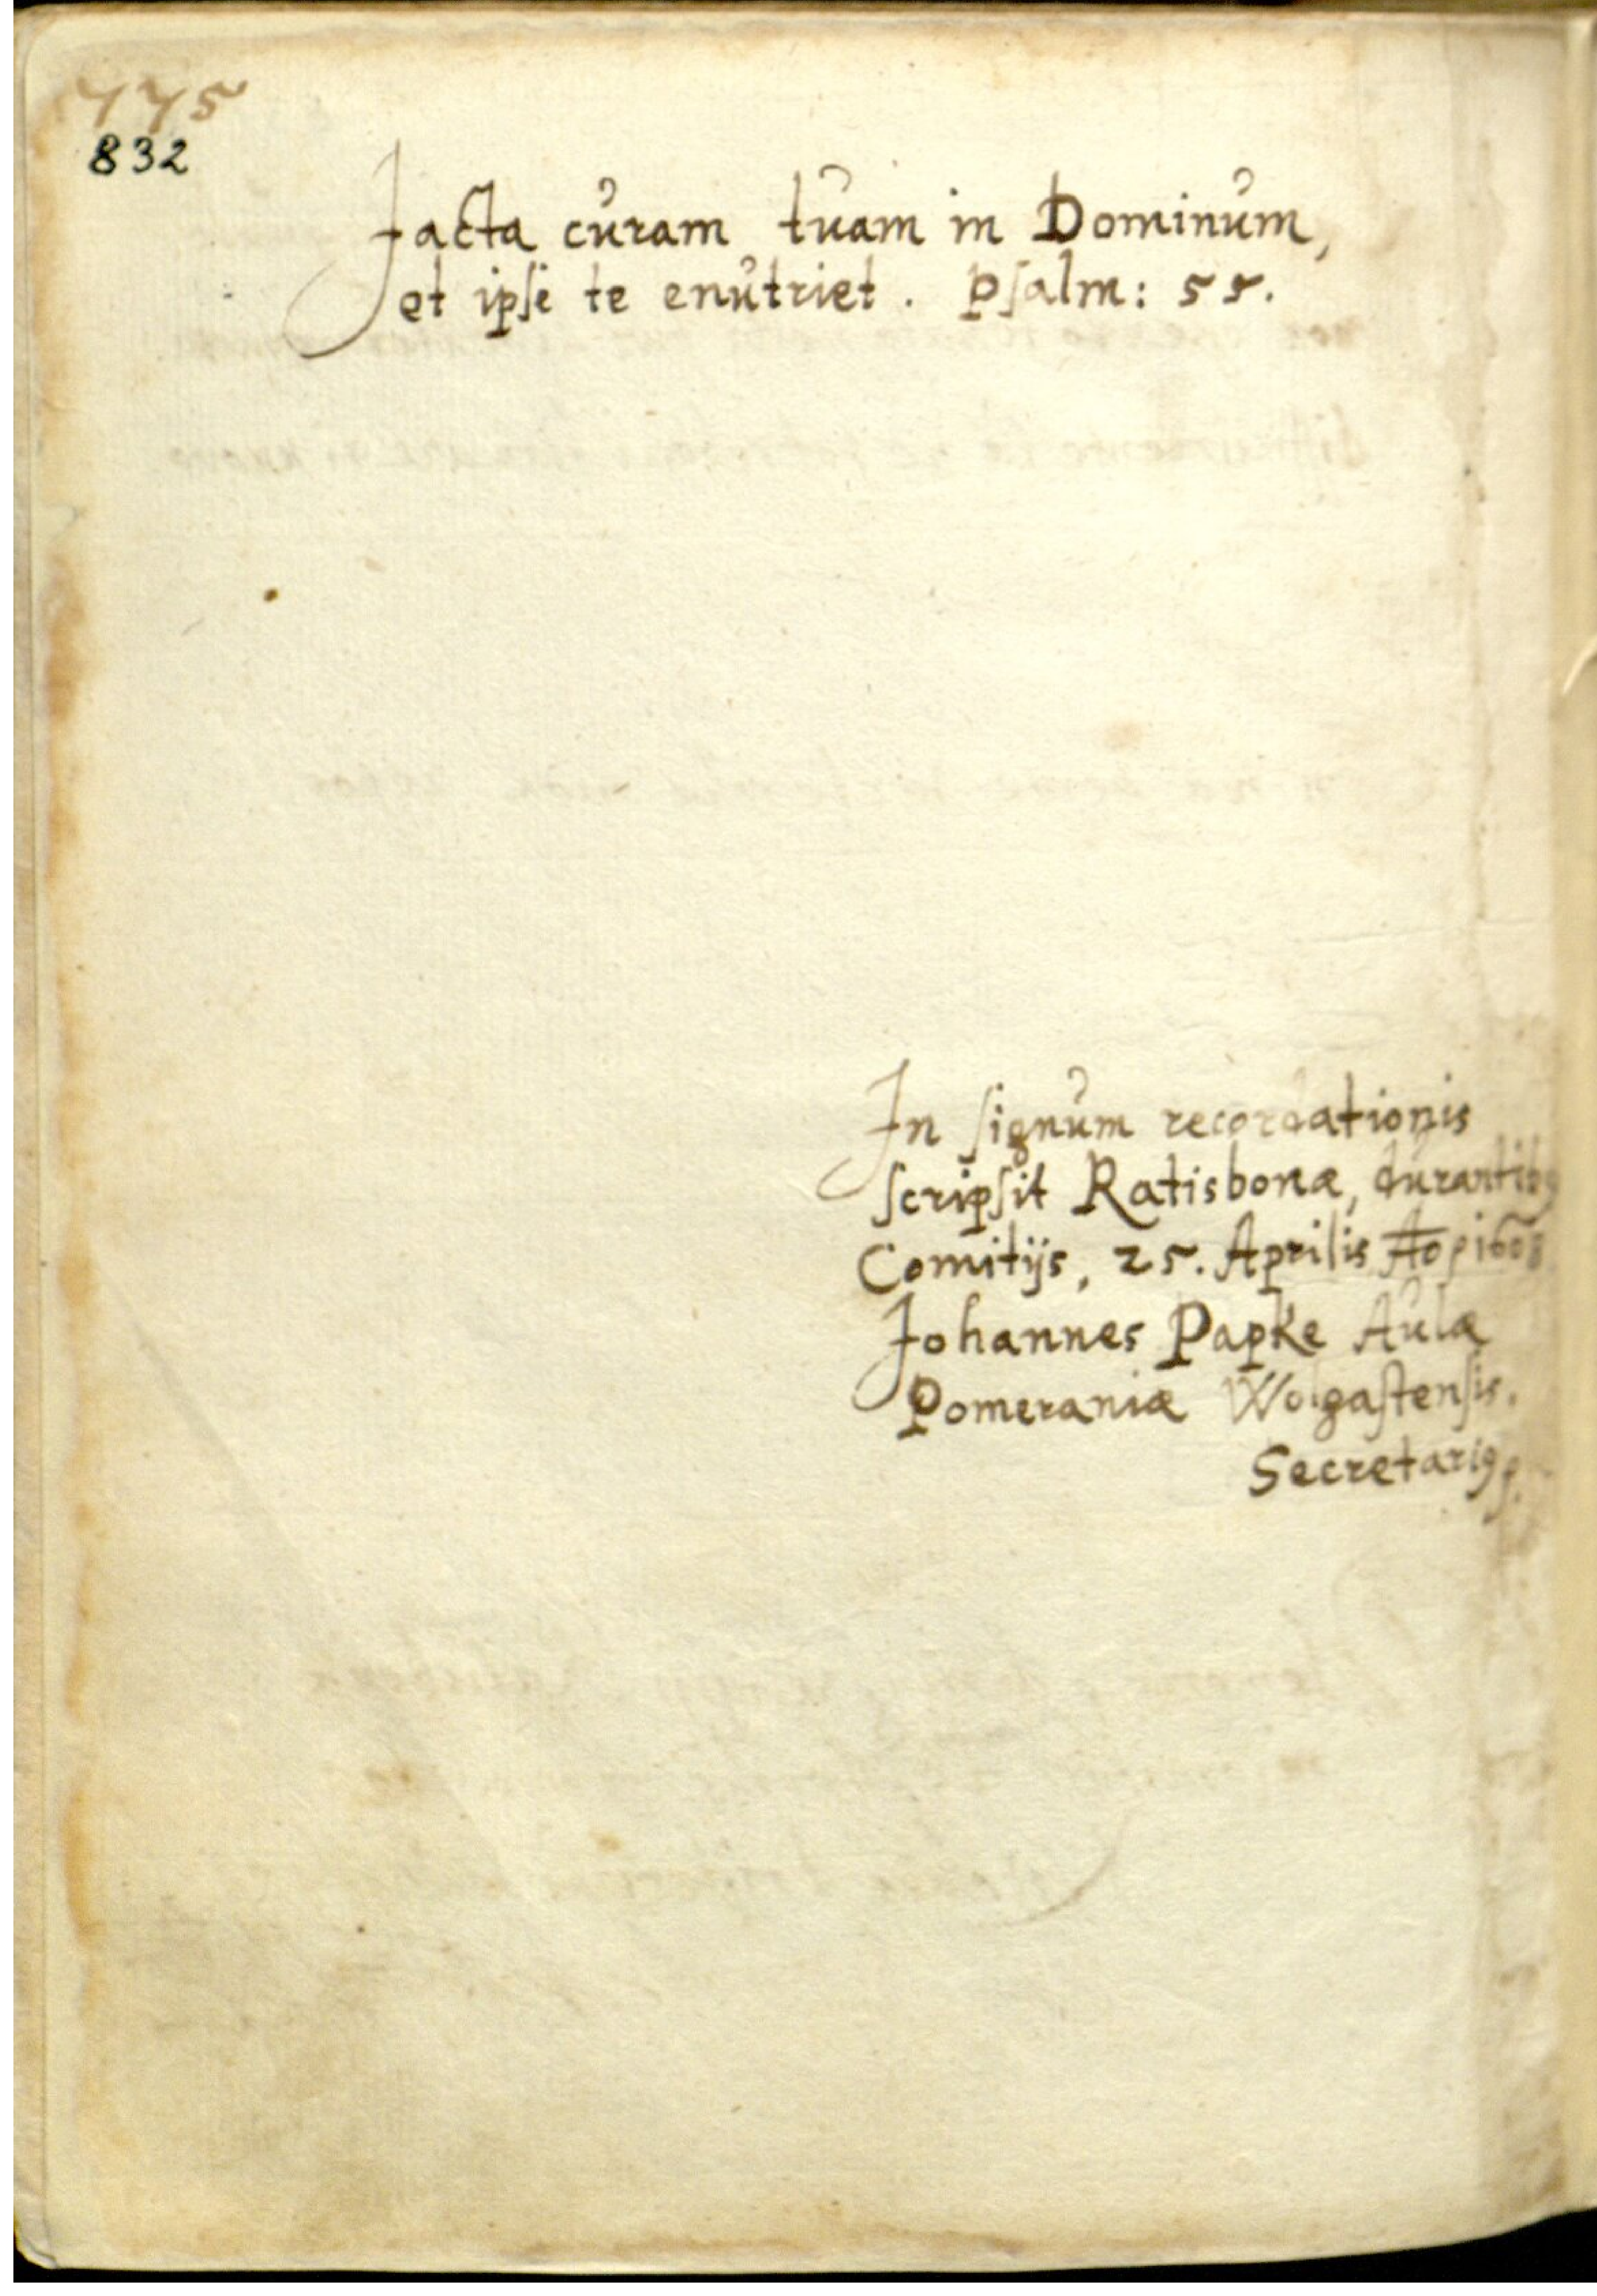 775
832
Jacta curam tuam in Dominum,
et ipse te enutriet. Psalm: 55.
In signum recordationis
scripsit Ratisbonæ, durantibꝰ
Comitijs, 25. Aprilis Ao 1608
Johannes Papke Aulæ
Pomeraniæ Wolgastensis.
Secretariꝰ